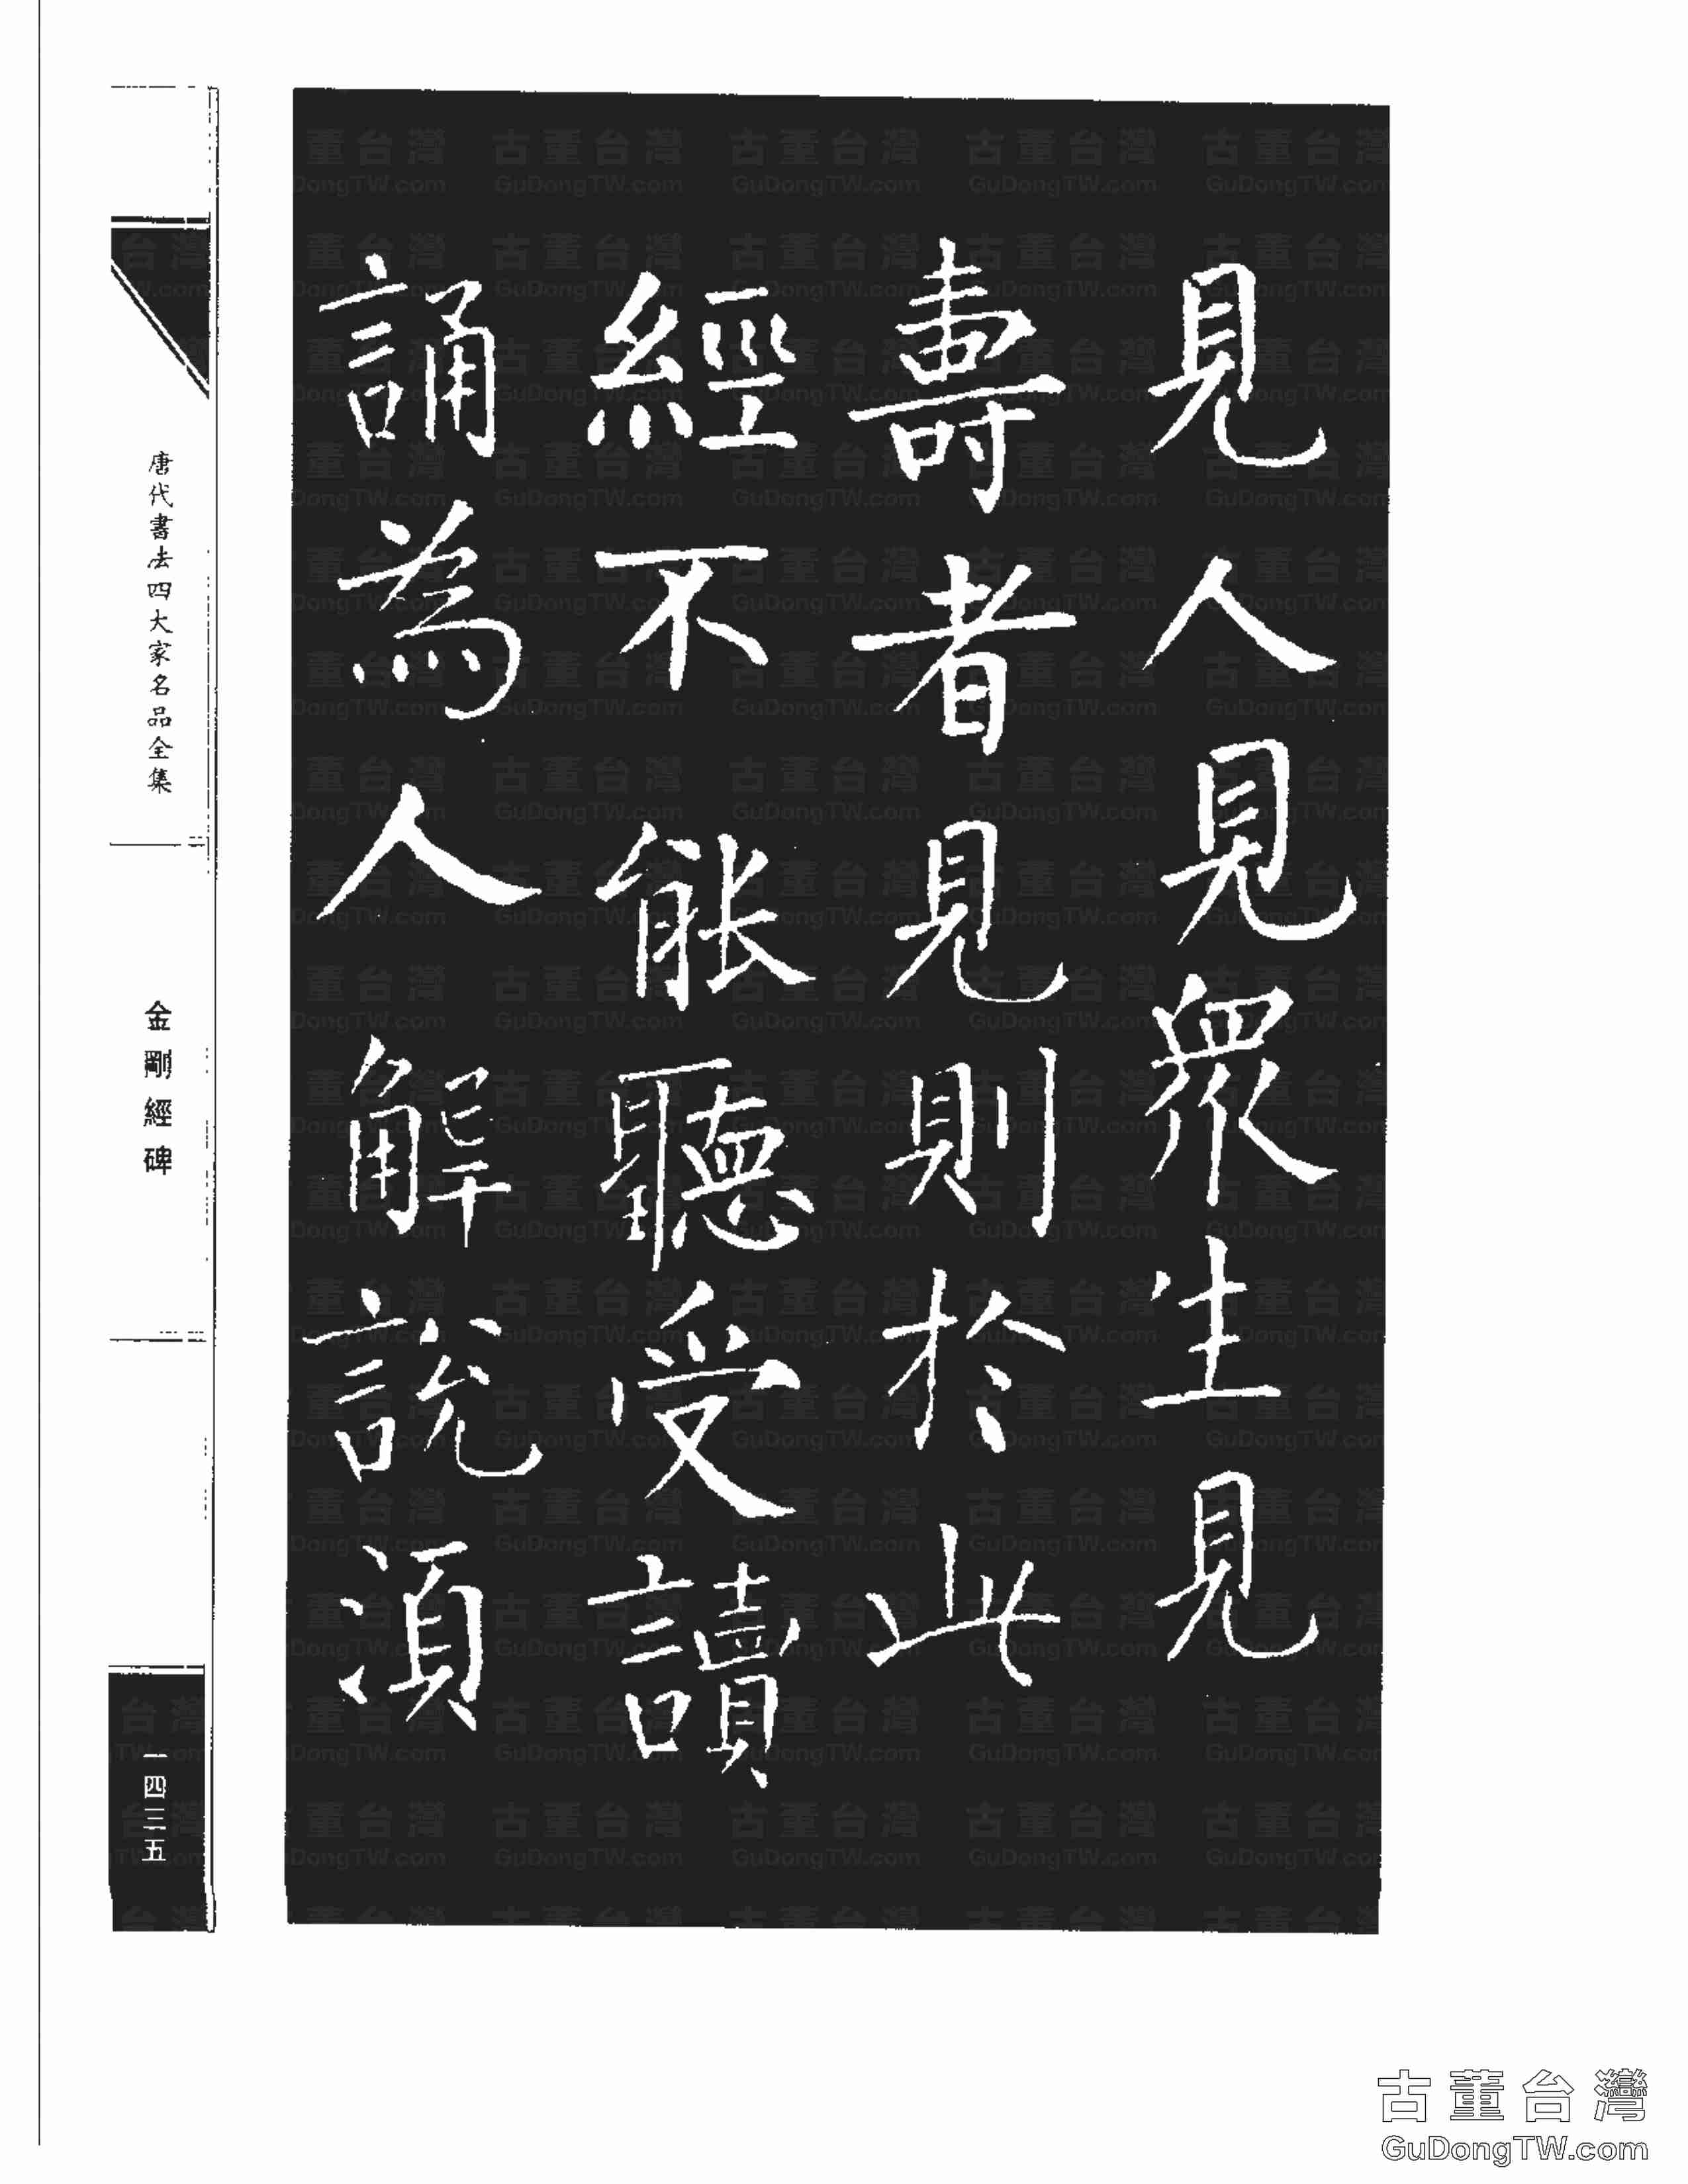 見人見眾生見
壽者見則於此
經不能聽受讀
誦為人解說湏
唐代書法四大家名品全集
金剛經碑
一四三五
古董台灣
GuDongTW.com